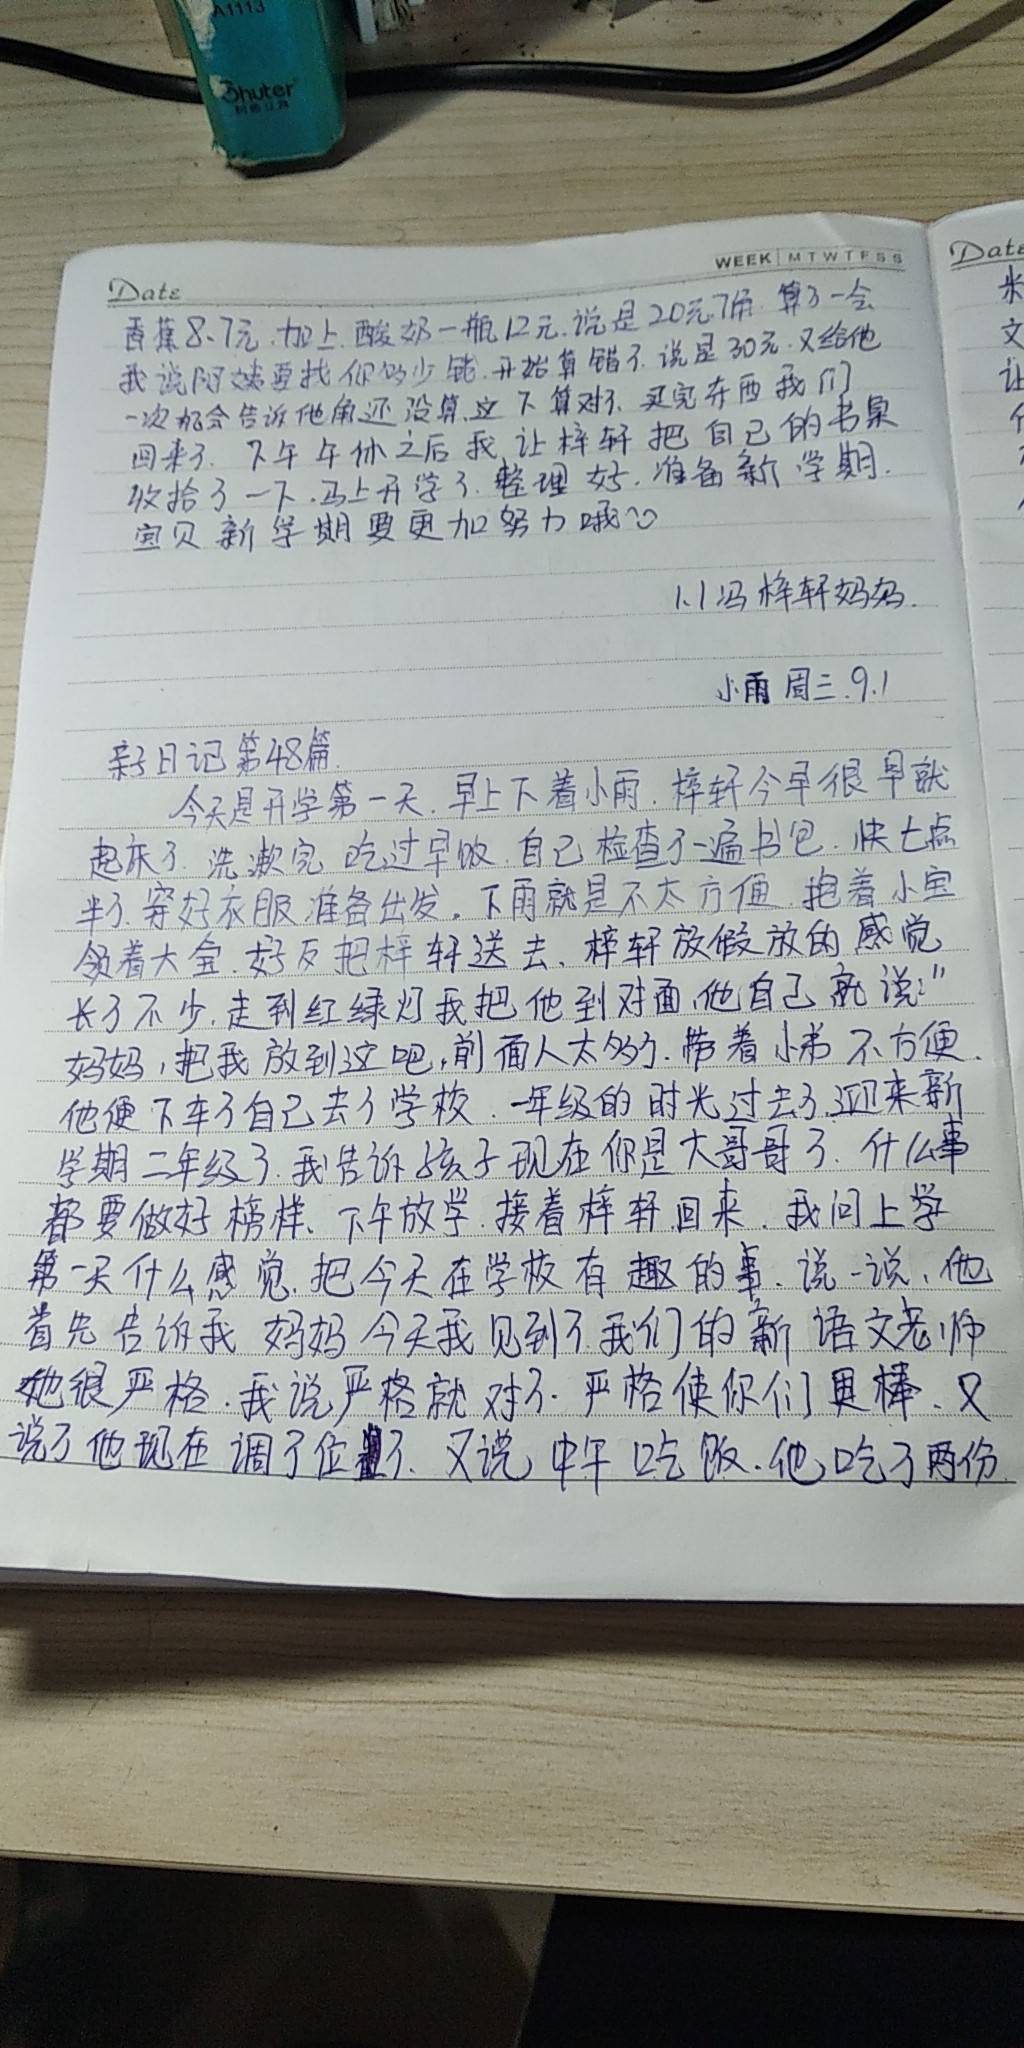 A1113
Shuter
Date
WEEK M T W T F S S
香蕉8.7元.加上.酸奶一瓶12元.说是20元7角.算了一会
我说阿姨要找你多少钱.开始算错了.说是30元.又给他
一次机会告诉他角还没算.这下算对了.买完东西我们
回来了.下午午休之后我让梓轩把自己的书桌
收拾了一下.马上开学了.整理好.准备新学期.
宝贝新学期要更加努力哦
1.1冯梓轩妈妈.
小雨 周三.9.1
亲子日记第48篇.
今天是开学第一天.早上下着小雨.梓轩今早很早就
起床了.洗漱完吃过早饭.自己检查了一遍书包.快七点
半了.穿好衣服准备出发.下雨就是不太方便.抱着小宝
领着大宝.好歹把梓轩送去.梓轩放假放的感觉
长了不少.走到红绿灯我把他到对面.他自己就说:"
妈妈,把我放到这吧,前面人太多了.带着小弟不方便.
他便下车了自己去了学校.一年级的时光过去了.迎来新
学期二年级了.我告诉孩子现在你是大哥哥了.什么事
都要做好榜样.下午放学.接着梓轩回来.我问上学
第一天什么感觉.把今天在学校有趣的事.说一说.他
首先告诉我妈妈今天我见到了我们的新语文老师
她很严格.我说严格就对了.严格使你们更棒.又
说了他现在调了位置了.又说中午吃饭.他吃了两份.
Date
米
文
让